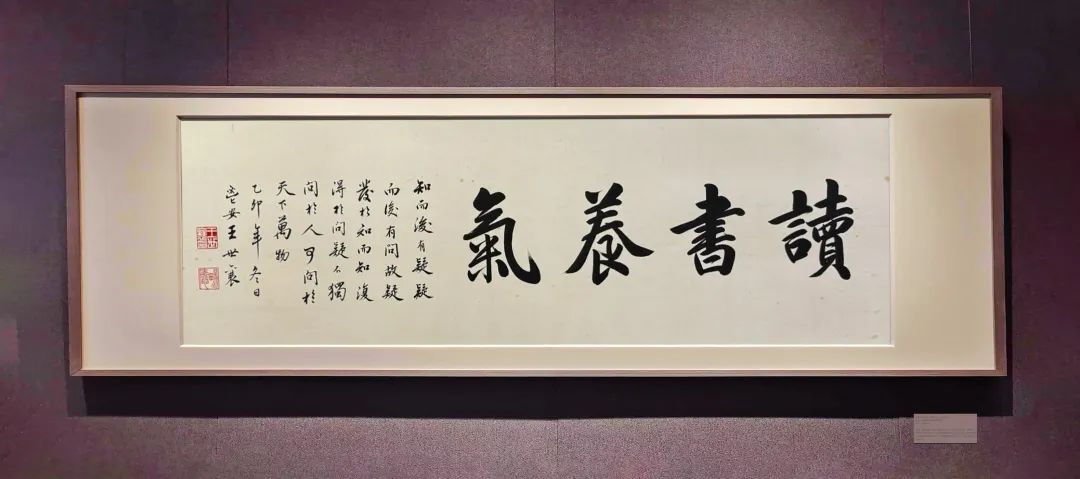 讀書養氣
知而後有疑疑
而後有問故疑
發於知而知復
得於問疑不獨
問於人可問於
天下萬物
乙卯年冬日
鬯安王世襄